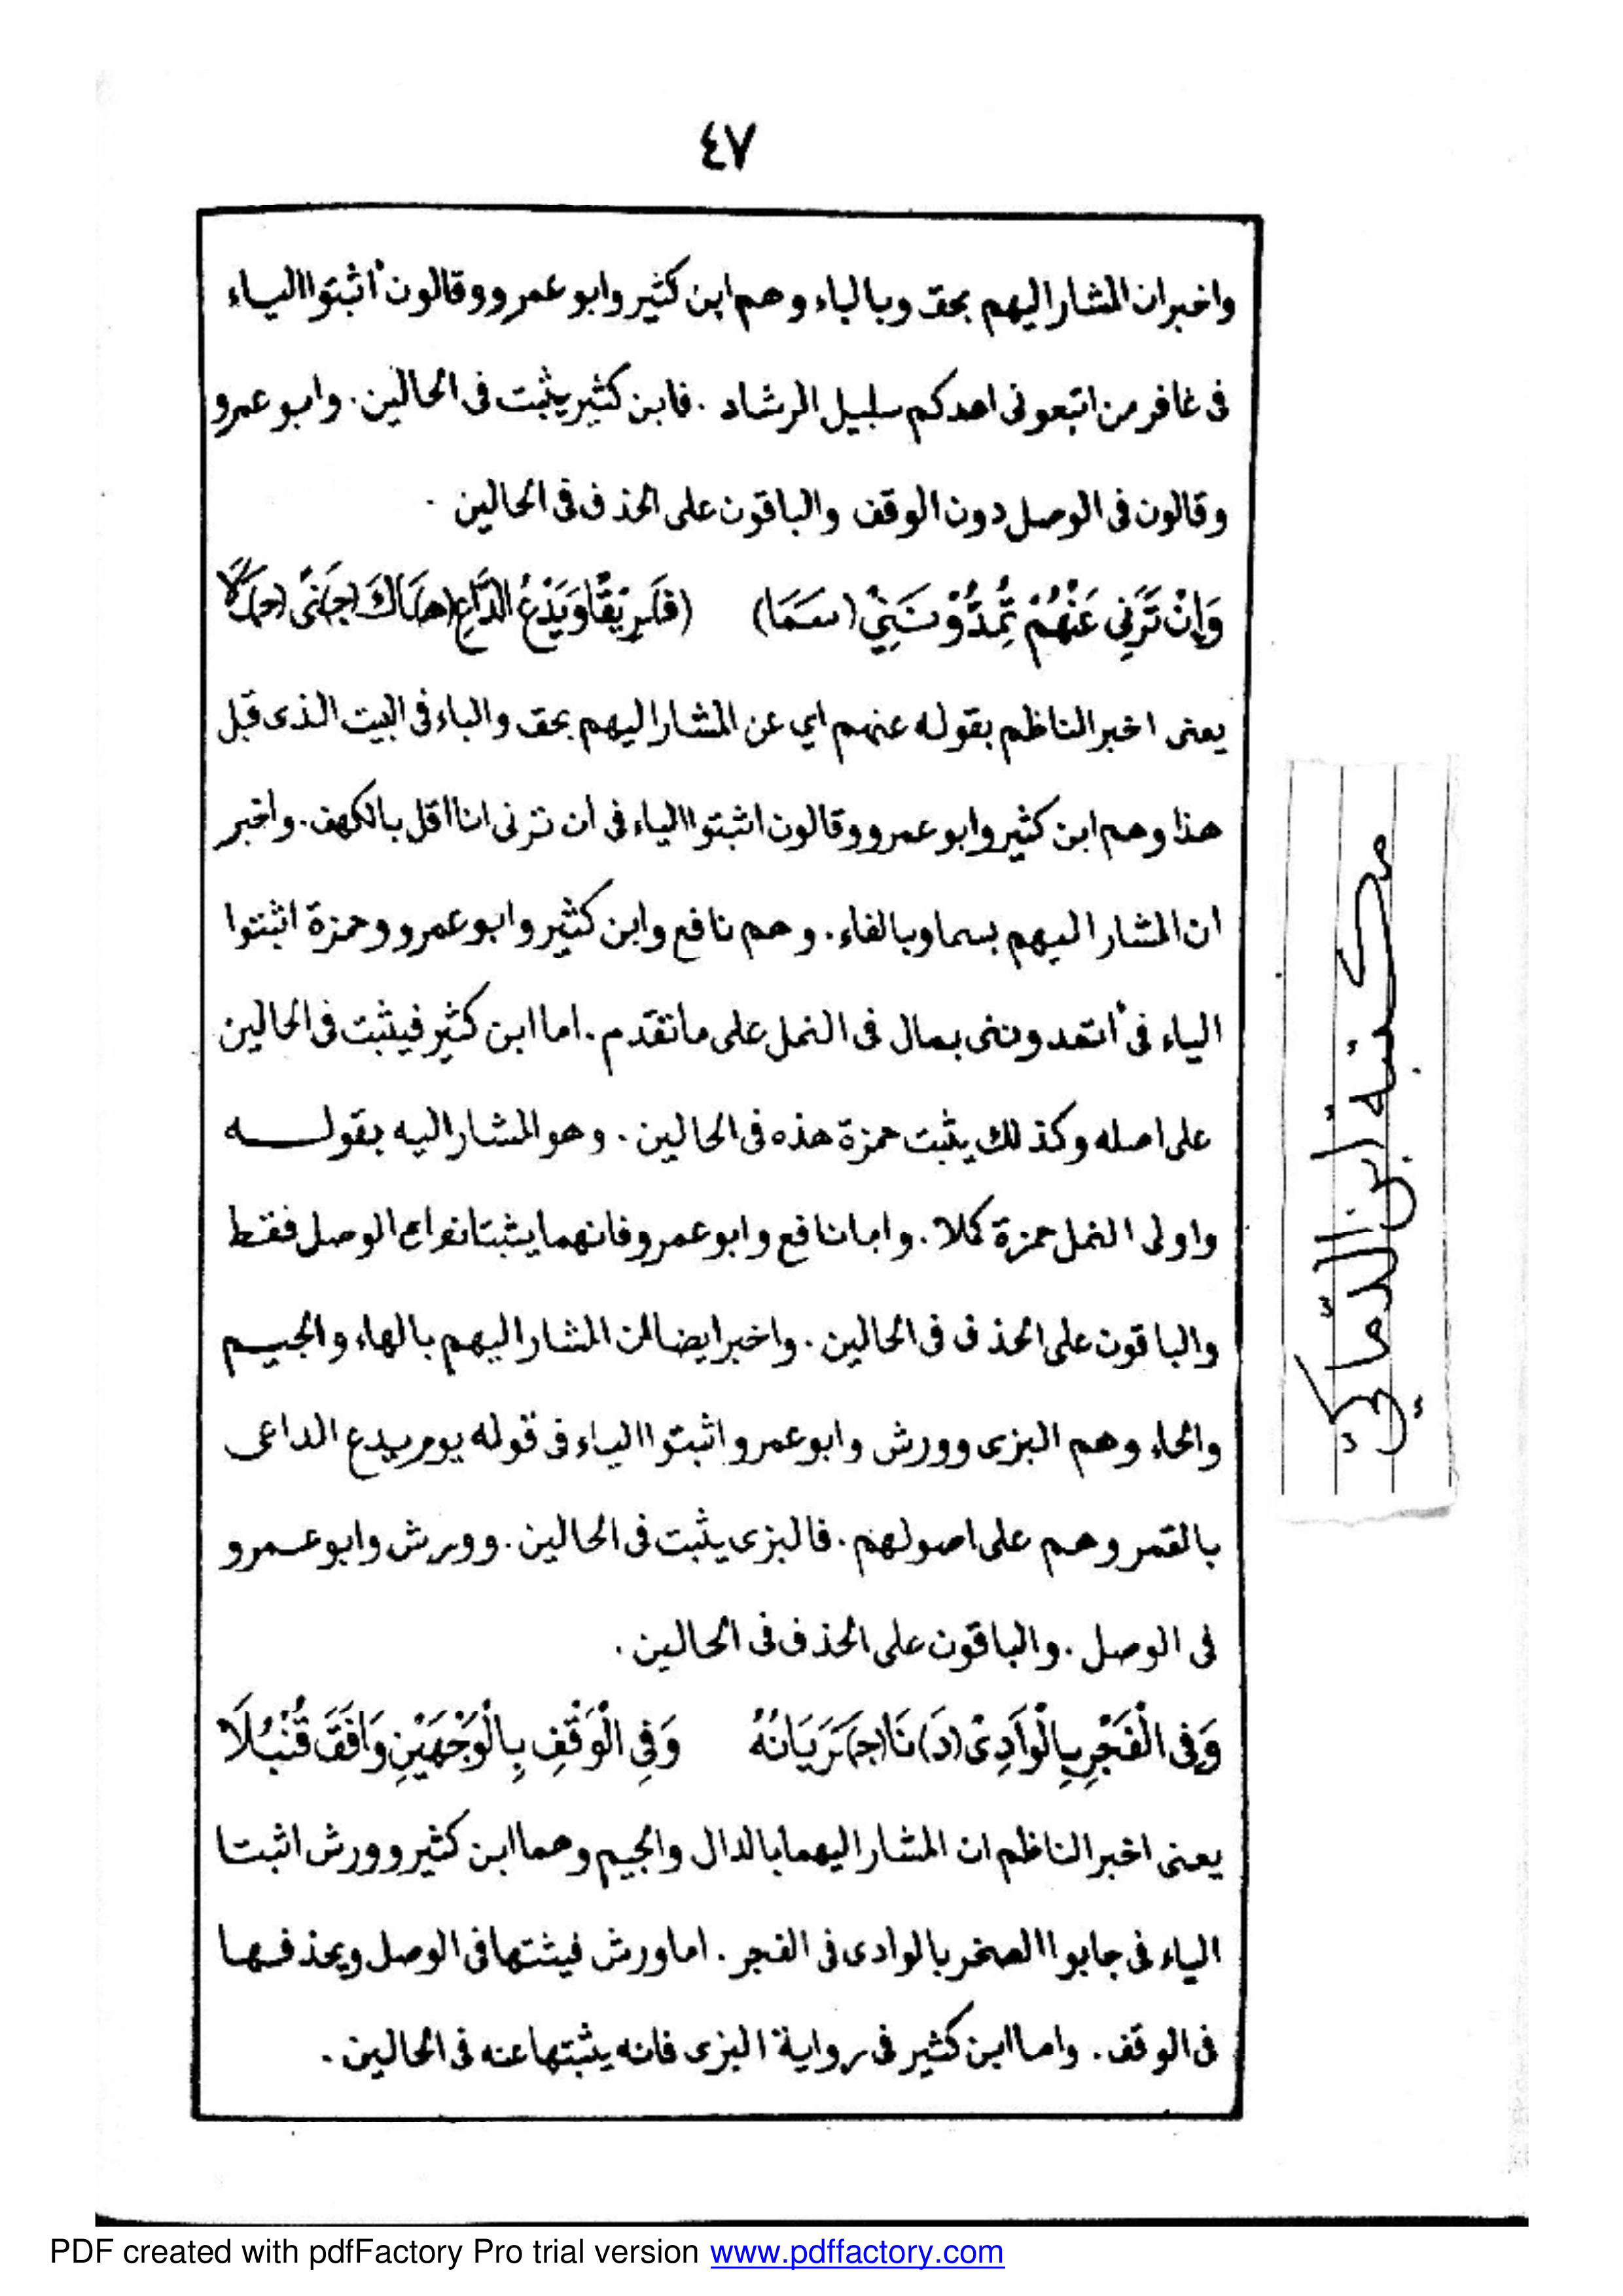 ٤٧
واخبران المشار اليهم بحق وبالباء وهم ابن كثير وابو عمرو وقالون أثبتوا الياء
فى غافر من اتبعونى اهدكم سبيل الرشاد . فابن كثير يثبت فى الحالين . وابو عمرو
وقالون فى الوصل دون الوقف والباقون على الحذف فى الحالين .
وَاِنْ تَرَنِى عَنْهُمْ تُمِدُّوْنَنِيْ (سَمَا) (فَ)رِيْقًا وَيَدْعُ الدَّاعِ (هَ)اكَ (جَ)نًى (حَ)لَا
يعنى اخبر الناظم بقوله عنهم اي عن المشار اليهم بحق والباء فى البيت الذى قبل
هذا وهم ابن كثير وابو عمرو وقالون اثبتوا الياء فى ان ترنى انا اقل بالكهف . واخبر
ان المشار اليهم بسما وبالفاء . وهم نافع وابن كثير وابو عمرو وحمزة اثبتوا
الياء فى أتمدوننى بمال فى النمل على ما تقدم . اما ابن كثير فيثبت فى الحالين
على اصله وكذلك يثبت حمزة هذه فى الحالين . وهو المشار اليه بقوله
واولى النمل حمزة كملا . واما نافع وابو عمرو فانهما يثبتا الوصل فقط
والباقون على الحذف فى الحالين . واخبر ايضا ان المشار اليهم بالهاء والجيم
والحاء وهم البزى وورش وابو عمرو اثبتوا الياء فى قوله يوم يدع الداعى
بالقمر وهم على اصولهم . فالبزى يثبت فى الحالين . وورش وابو عمرو
فى الوصل . والباقون على الحذف فى الحالين .
وَفِى الْفَجْرِ بِالْوَادِىْ (دَ)نَا (جَ)رَيَانُهُ وَفِى الْوَقْفِ بِالْوَجْهَيْنِ وَافَقَ قُنْبُلَا
يعنى اخبر الناظم ان المشار اليهما بالدال والجيم وهما ابن كثير وورش اثبتا
الياء فى جابوا الصخر بالوادى فى الفجر . اما ورش فيثتها فى الوصل ويحذفها
فى الوقف . واما ابن كثير فى رواية البزى فانه يثبتها عنه فى الحالين .
مكتبة ابن الدّماكي
PDF created with pdfFactory Pro trial version www.pdffactory.com